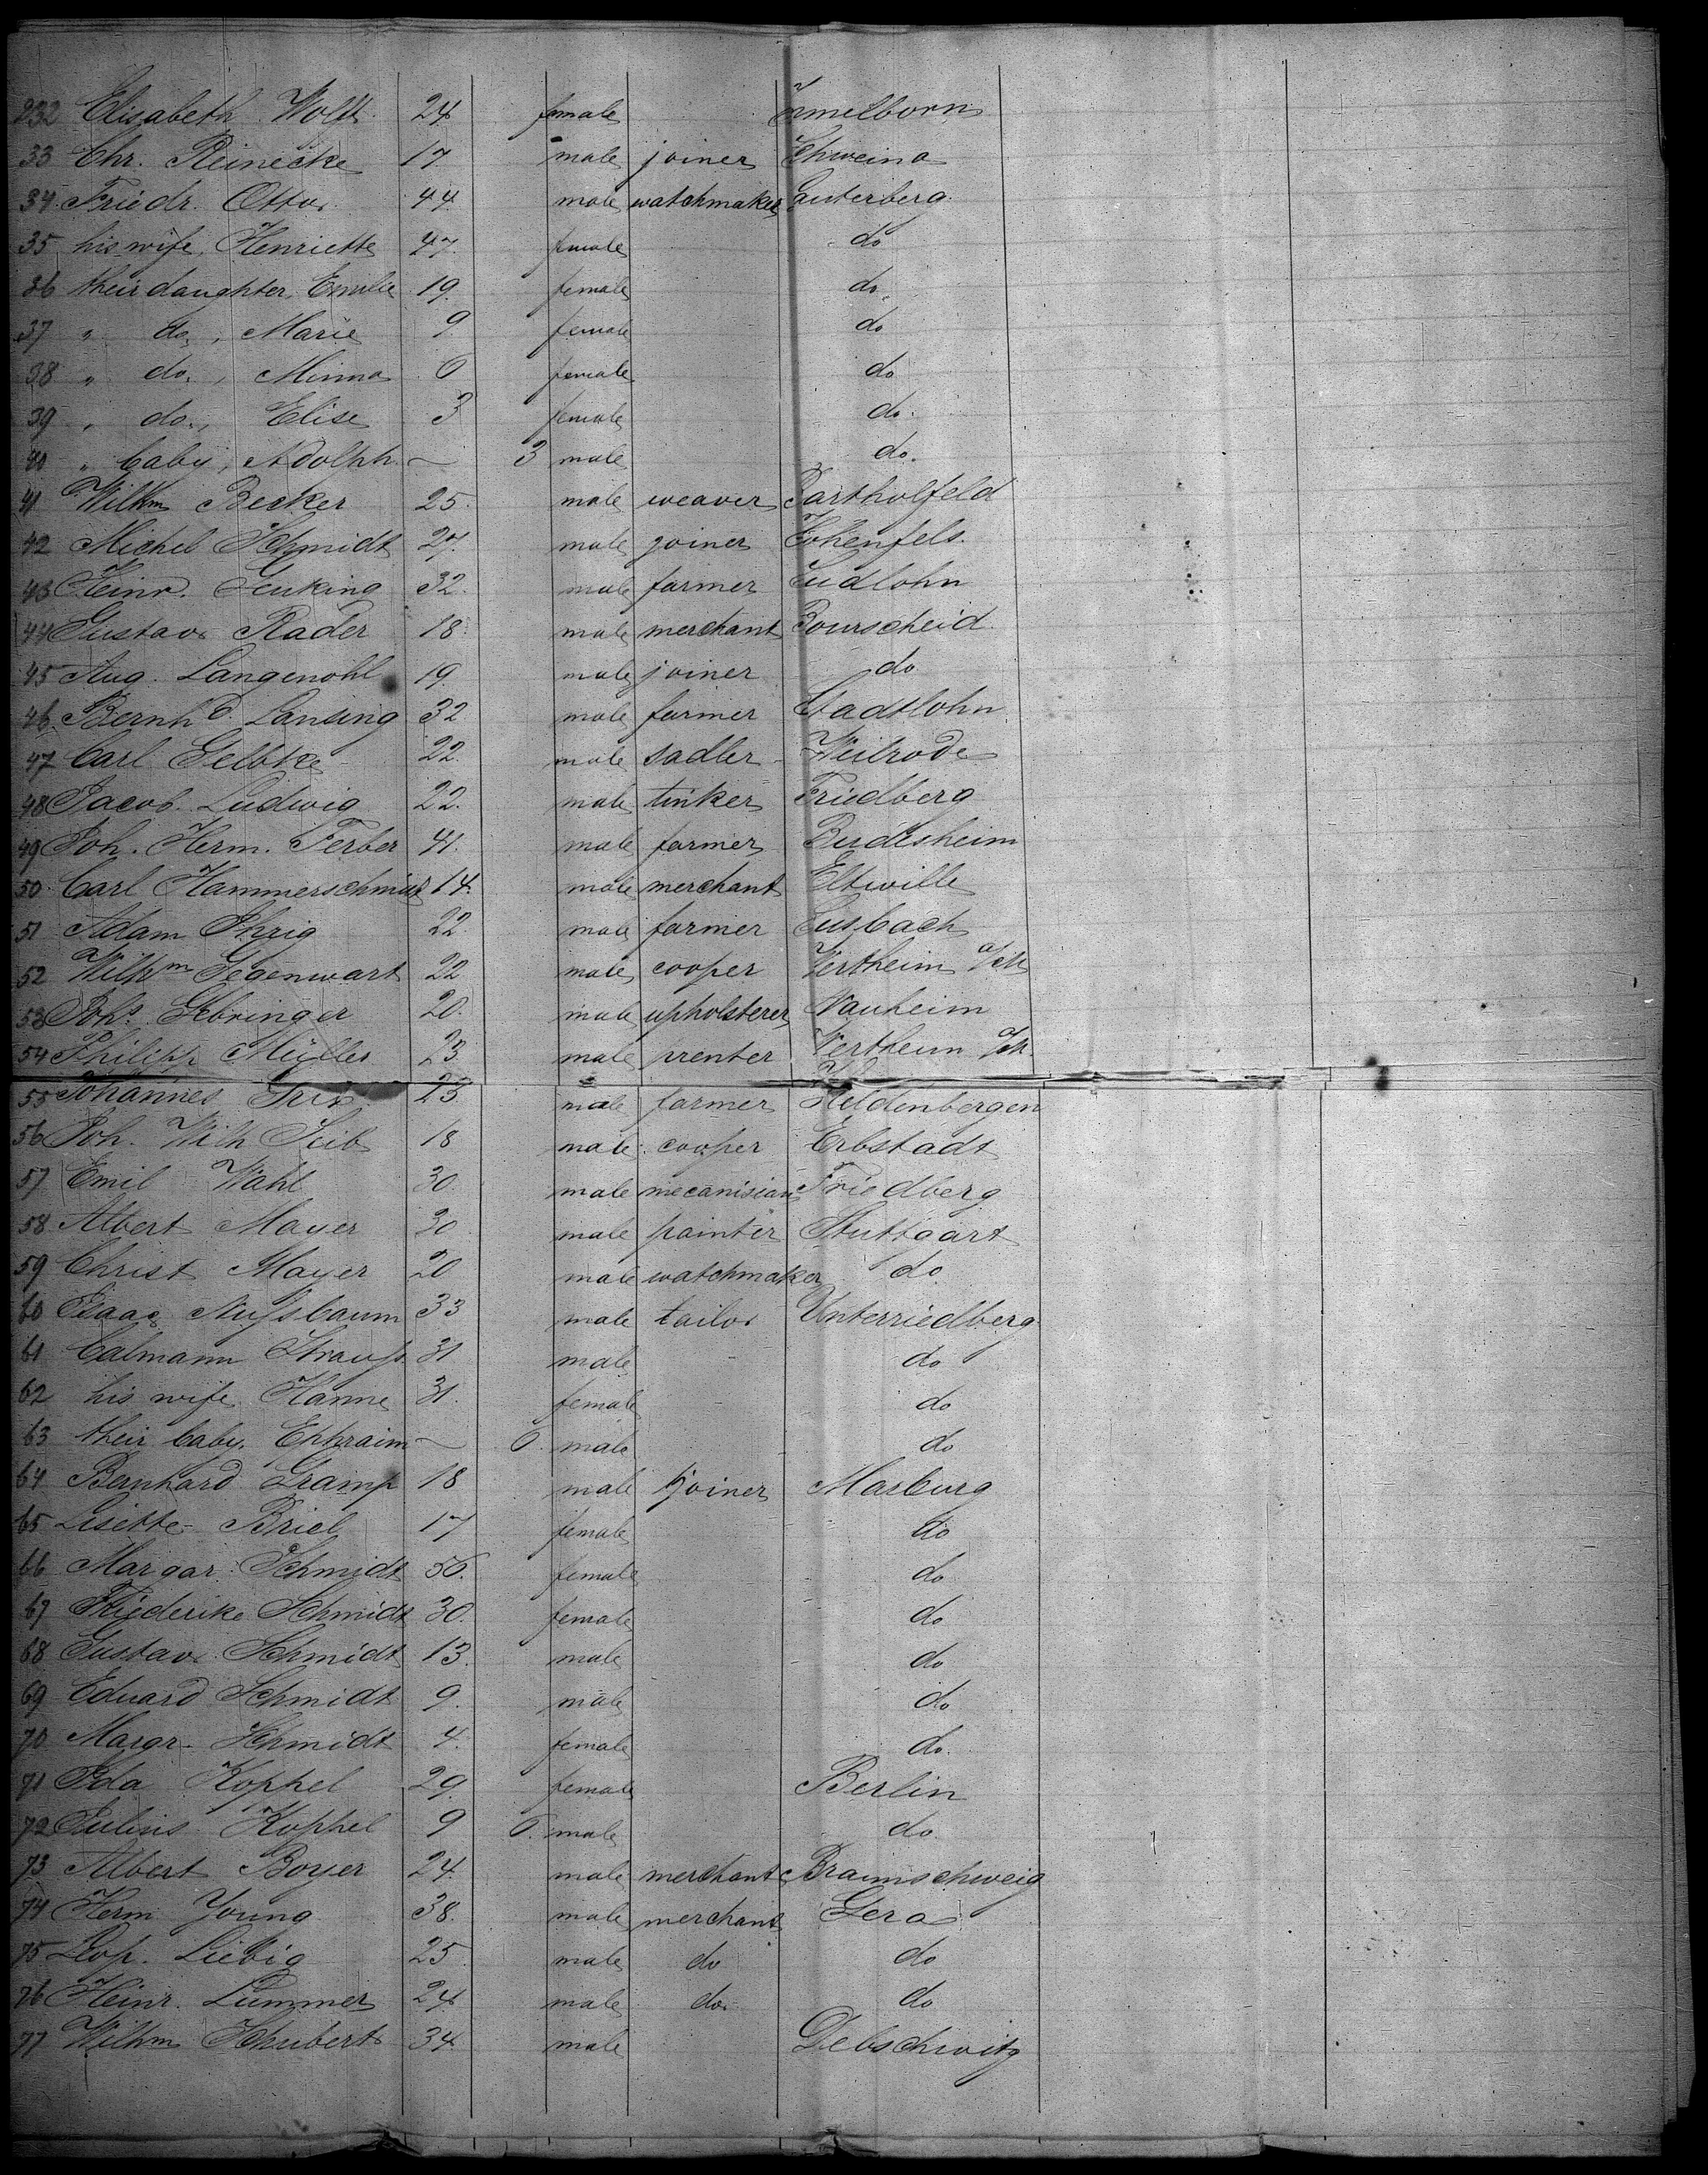 232 Elisabeth Wolff 24 female Immelborn
33 Chr. Reinecke 17 male joiner Schweina
34 Friedr. Otto 44 male watchmaker Lauterberg
35 his wife, Henriette 47 female do
36 their daughter, Emilie 19 female do.
37 " do., Marie 9 female do
38 " do., Minna 6 female do
39 " do., Elise 3 female do.
40 " baby, Adolph — 3 male do.
41 Wilhm Becker 25 male weaver Bartholfeld
42 Michel Schmidt 27 male joiner Hohenfels
43 Heinr. 32 male farmer Sudlohn
44 Gustav Rader 18 male merchant Bourscheid
45 Aug. Langenohl 19 male joiner do
46 Bernhd. Lansing 32 male farmer Stadtlohn
47 Carl Gelbke 22 male sadler Weilrode
48 Jacob Ludwig 22 male tinker Friedberg
49 Joh. Herm. Ferber 41 male farmer Budesheim
50 Carl Hammerschmidt 14 male merchant Eltwille
51 Adam Ihrig 22 male farmer
52 Wilhm Gegenwart 22 male cooper Wertheim a/M
53 Johs. Gebringer 20 male upholsterer Nauheim
54 Philipp Müller 23 male prenter Wertheim a/M.
55 Johannes 23 male farmer Heldenbergen
56 Joh. Wilh Seib 18 male cooper Erbstadt
57 Emil Wahl 30 male mecanisian Friedberg
58 Albert Mayer 30 male painter Stuttgart
59 Christ Mayer 20 male watchmaker do
60 Isaac Nußbaum 33 male tailor Unterriedberg
61 Calmann Strauß 31 male do
62 his wife Hanne 31 female do
63 their baby, Ephraim — 6 male do
64 Bernhard Gramp 18 male joiner Marburg
65 Lisette Briel 17 female do
66 Margar. Schmidt 56 female do
67 Friederike Schmidt 30 female do
68 Gustav Schmidt 13 male do
69 Eduard Schmidt 9 male do
70 Margr. Schmidt 4 female do.
71 Ida Kophel 29 female Berlin
72 Julius Kophel 9 6 male do
73 Albert Boyer 24 male merchant Braunschweig
74 Herm Young 38 male merchant Gera
75 Leop. Liebig 25 male do do
76 Heinr. Lummer 24 male do. do
77 Wilhm Schubert 34 male Debschwitz